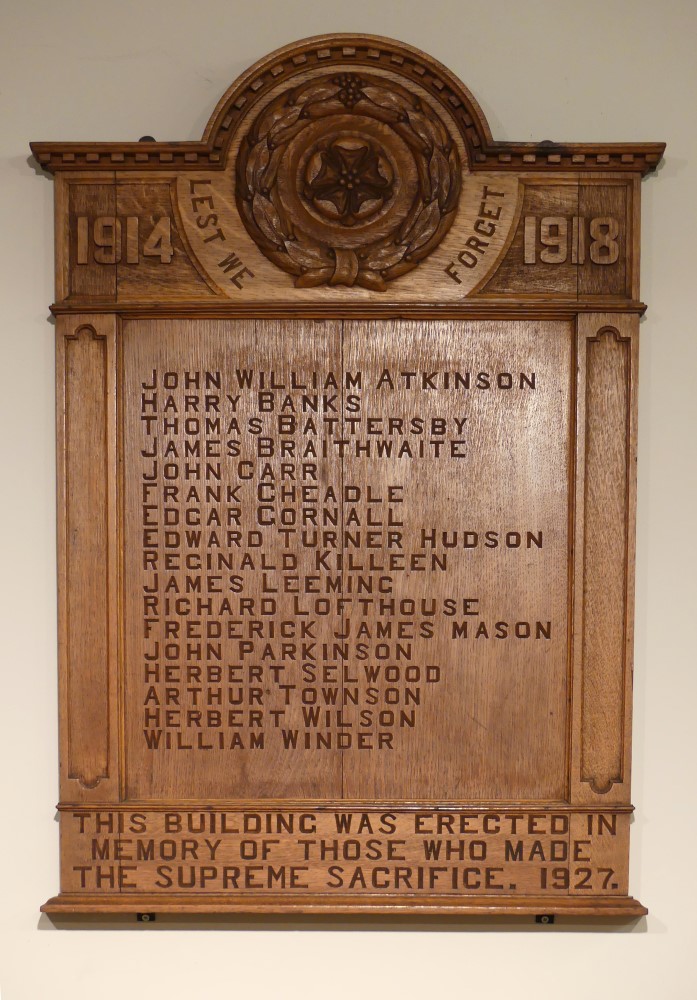 1914 LEST WE FORGET 1918
JOHN WILLIAM ATKINSON
HARRY BANKS
THOMAS BATTERSBY
JAMES BRAITHWAITE
JOHN CARR
FRANK CHEADLE
EDGAR CORNALL
EDWARD TURNER HUDSON
REGINALD KILLEEN
JAMES LEEMING
RICHARD LOFTHOUSE
FREDERICK JAMES MASON
JOHN PARKINSON
HERBERT SELWOOD
ARTHUR TOWNSON
HERBERT WILSON
WILLIAM WINDER
THIS BUILDING WAS ERECTED IN
MEMORY OF THOSE WHO MADE
THE SUPREME SACRIFICE. 1927.